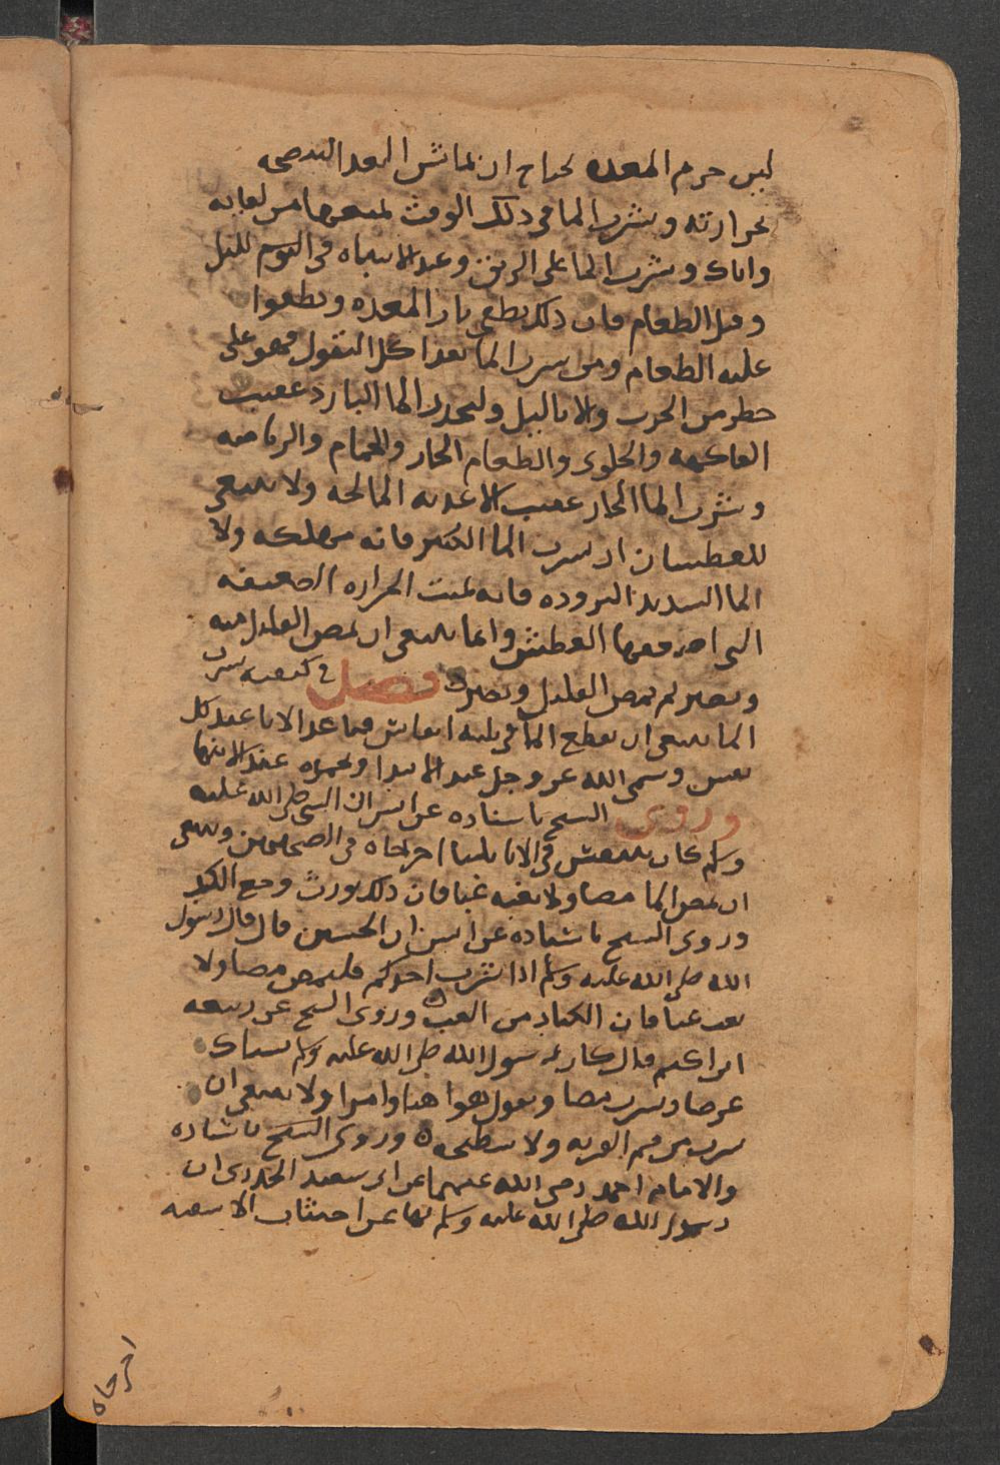 ليس جرم المعده يحتاج ان يماس الغدا لتنضجه
بحرارته وشرب الما في ذلك الوقت يمنعها من لقايه
واياك وشرب الما على الريق وعند الانتباه في النوم لليل
وقبل الطعام فان ذلك يطفي نار المعده ويطفوا
عليه الطعام ومن شرب الما بعد اكل البقول فهو على
خطر من الجرب ولا بالليل وليحذر الما البارد عقيب
الفاكهه والحلوى والطعام الحار والحمام والرياضه
وشرب الما الحار عقيب الاغديه المالحه ولا ينبغي
للعطشان ان يشرب الما الكثير فانه مهلكه ولا
الما الشديد البروده فانه يميت الحراره الضعيفه
التي اضعفها العطش وانما ينبغي ان يمص القليل منه
ويصبر ثم يمص القليل ويصبر فصل في كيفيه شرب
الما ينبغي ان يقطع الما في ثلثه انفاس فيباعد الانا عند كل
نفس ويسمي الله عز وجل عند الابتدا ويحمده عند الانتها
وروى الشيخ باسناده عن انس ان النبي صلى الله عليه
وسلم كان يتنفس في الانا ثلثا اخرجاه في الصحيحين وينبغي
ان يمص الما مصا ولا يعبه عبا فان ذلك يورث وجع الكبد
وروى الشيخ باسناده عن ابن ابي الحسين قال قال رسول
الله صلى الله عليه وسلم اذا شرب احدكم فليمص مصا ولا
يعب عبا فان الكباد من العب ه وروى الشيخ عن ربيعه
ابن اكثم قال كان رسول الله صلى الله عليه وسلم يستاك
عرضا ويشرب مصا ويقول هو اهنا وامرا ولا ينبغي ان
يشرب من فم القربه ولا ينطحه وروى الشيخ باسناده
والامام احمد رضي الله عنهما عن ابي سعيد الخدري ان
رسول الله صلى الله عليه وسلم نها عن اختناث الاسقيه
اخرجاه